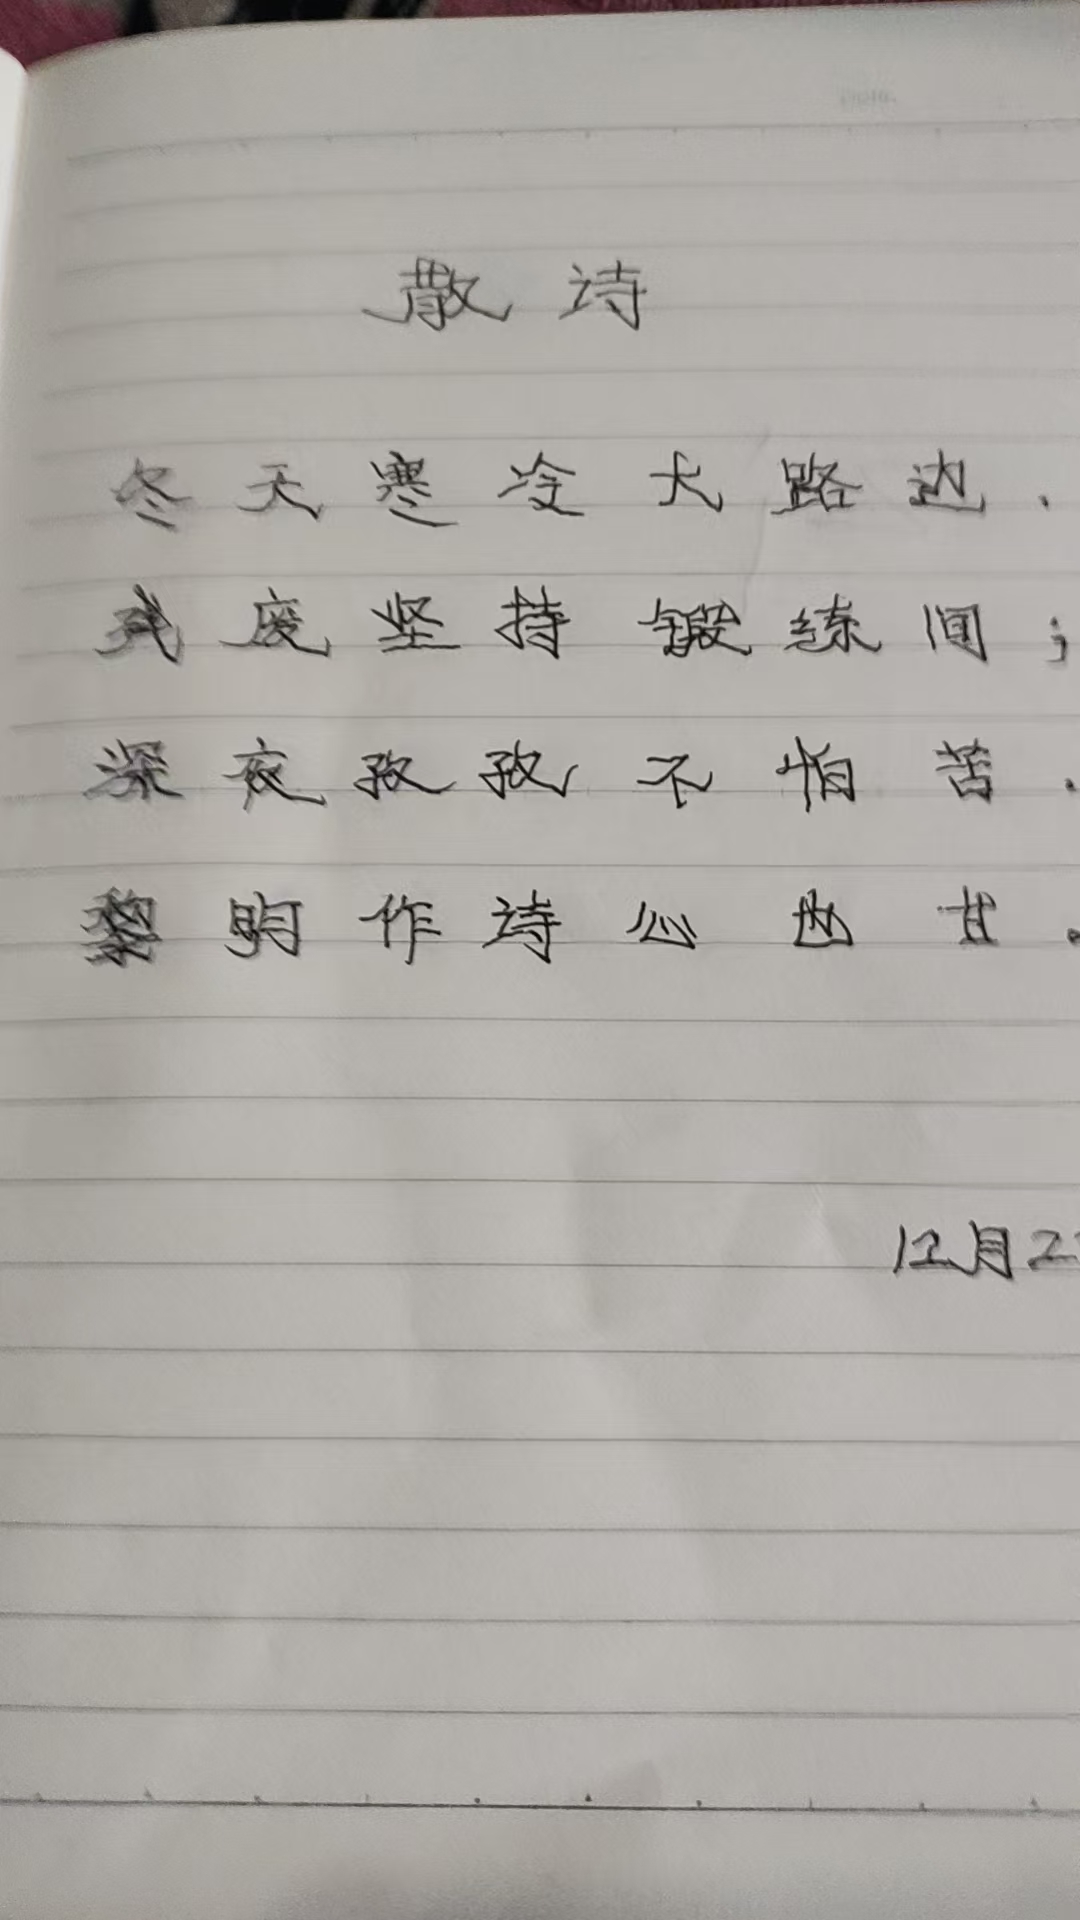 散诗
冬天寒冷大路边.
残废坚持锻练间;
深夜孜孜不怕苦.
黎明作诗心也甘。
12月2